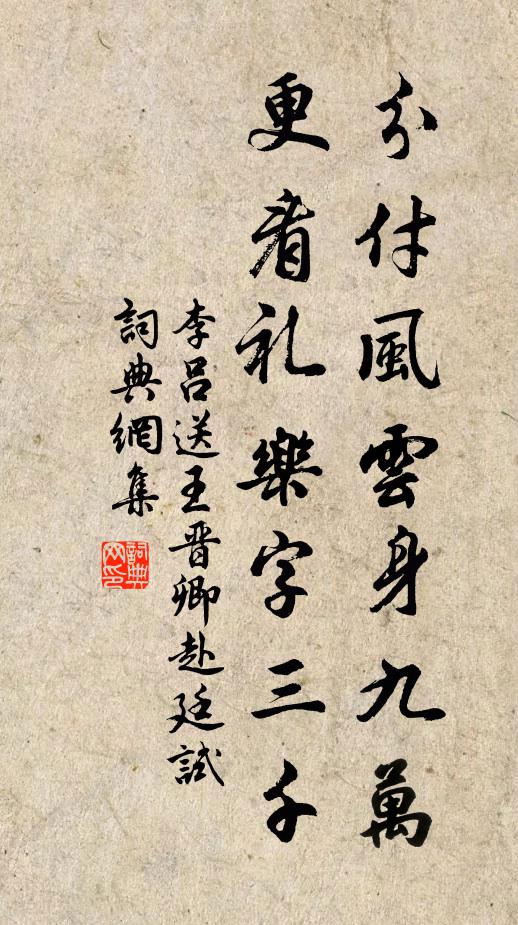 分付風雲身九萬
更看礼樂字三千
李呂送王晋卿赴廷試
詞典網集
詞典
网印